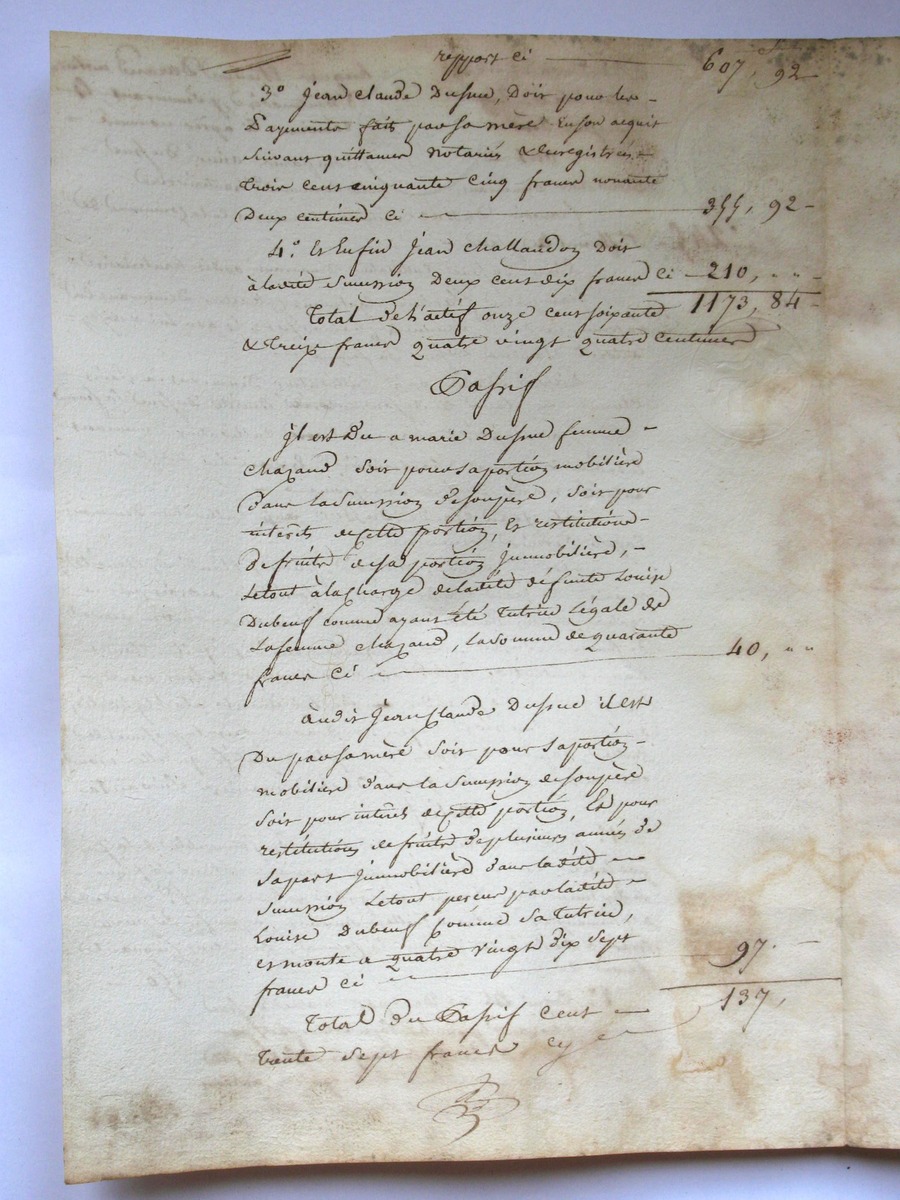 report ci 607, 92
3° Jean Claude Dufour, Doit pour les
Payements faits par sa mère en son acquit
suivant quittances Notariés & Enregistrées
trois cent cinquante Cinq francs nonante
Deux centimes ci 355, 92
4.° Et Enfin Jean Challandon Doit
à ladite succession Deux cent dix francs ci 210, " "
Total de l'actif onze cent soixante 1173, 84
& treize francs quatre vingt quatre centimes
Passif
il est Du a marie femme
Chazaud soit pour sa portion mobilière
Dans la succession de son père, soit pour
intérêts de cette portion, Et restitutions
De fruits de sa portion Immobilière,
Le tout à la charge de ladite défunte Louise
Dubeuf comme ayant été tutrice Légale de
La femme Chazaud, la somme de quarante
francs Ci 40, " "
audit Jean Claude il est
Du par sa mère soit pour sa portion
mobilière Dans la succession de son père
soit pour intérêts de cette portion, Et pour
restitutions de fruits de plusieurs années de
sa part Immobilière Dans ladite
succession Le tout perçu par ladite
Louise Dubeuf Comme sa tutrice,
et monte a quatre vingt dix sept
francs ci 97.
Total du Passif cent 137,
trente sept francs cy